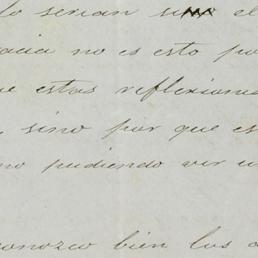 lo serian su el
acia no es esto po
e estas reflexione
, sino por que es
no pudiendo ver u
conozco bien los a